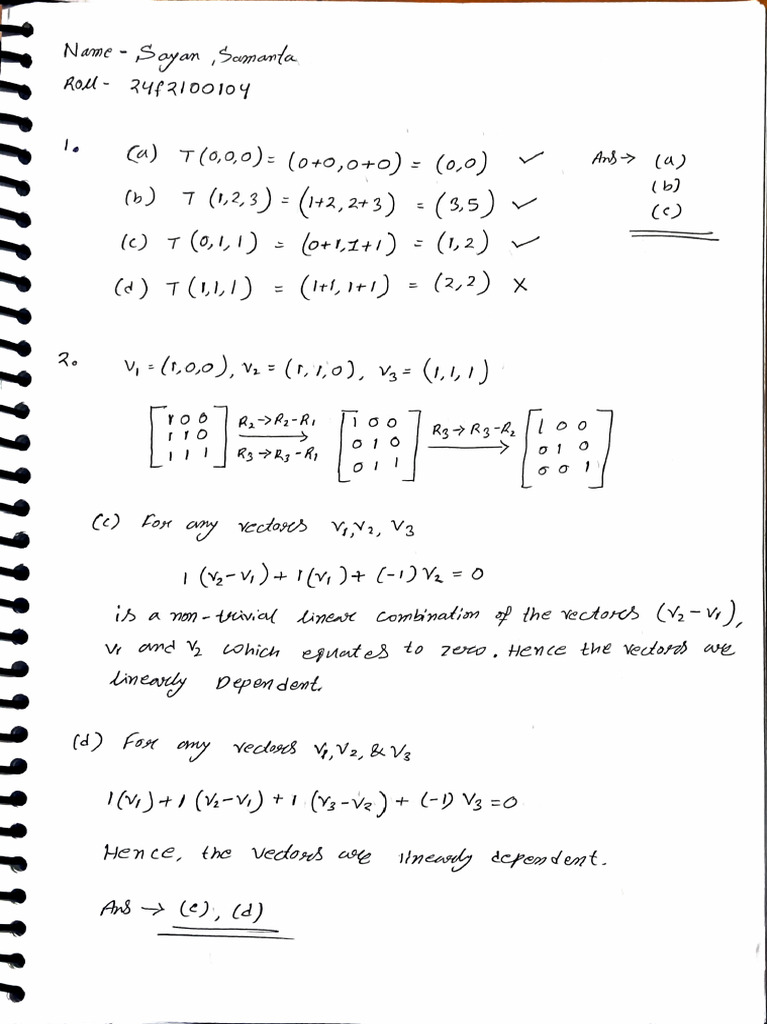 Name - Sayan Samanta
Roll - 24f2100104
1. (a) T(0,0,0) = (0+0,0+0) = (0,0) ✓ Ans → (a)
(b) T (1,2,3) = (1+2, 2+3) = (3,5) ✓ (b)
(c) T(0,1,1) = (0+1,1+1) = (1,2) ✓ (c)
(d) T(1,1,1) = (1+1, 1+1) = (2,2) ×
2. v₁ = (1,0,0), v₂ = (1,1,0), v₃ = (1,1,1)
[1 0 0] R₂→R₂-R₁ [1 0 0] R₃→R₃-R₂ [1 0 0]
[1 1 0] → [0 1 0] → [0 1 0]
[1 1 1] R₃→R₃-R₁ [0 1 1] [0 0 1]
(c) For any vectors v₁,v₂, v₃
1 (v₂-v₁) + 1(v₁) + (-1) v₂ = 0
is a non-trivial linear combination of the vectors (v₂-v₁),
v₁ and v₂ which equates to zero. Hence the vectors are
linearly Dependent.
(d) For any vectors v₁,v₂, & v₃
1(v₁) + 1 (v₂-v₁) + 1 (v₃-v₂) + (-1) v₃ = 0
Hence, the vectors are linearly dependent.
Ans → (c), (d)